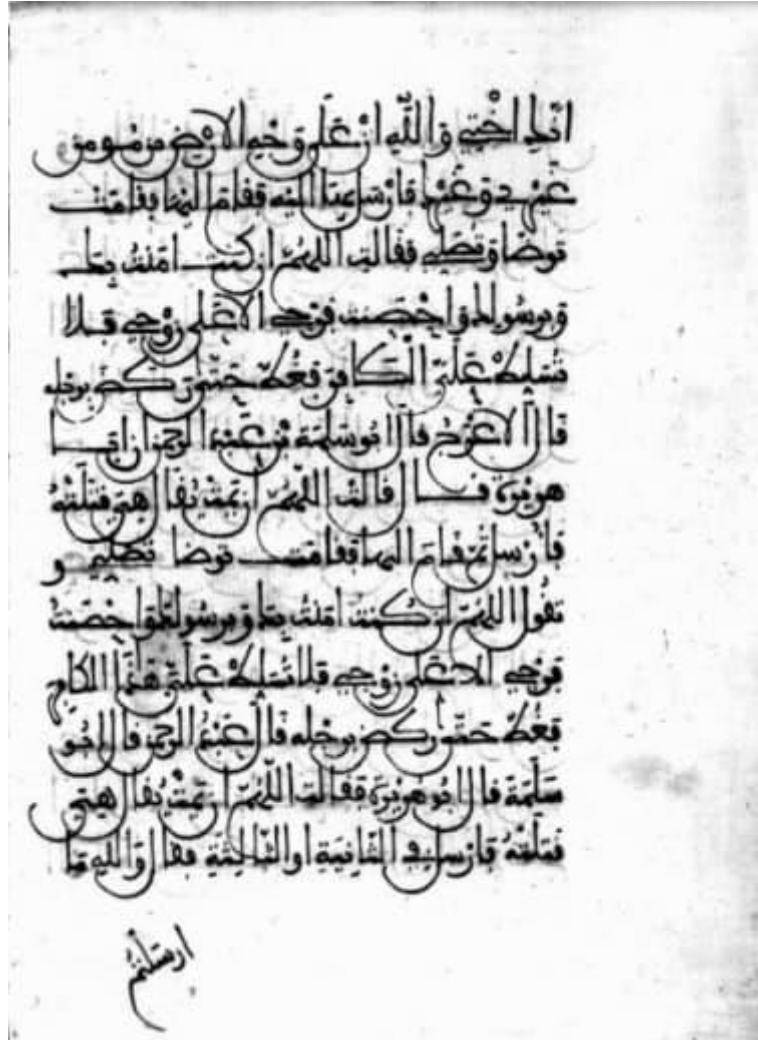 انك اختي والله ان على وجه الارض من مومن
غيري وغيرك فارسل بها اليه فقام اليها فقامت
توضا وتصلي فقالت اللهم ان كنت امنت بك
وبرسولك واحصنت فرجي الا على زوجي فلا
تسلط علي الكافر فغط حتى ركض برجله
قال الاعرج قال ابو سلمة بن عبد الرحمن ان ابا
هريرة قال قالت اللهم ان يمت يقال هي قتلته
فارسل ثم قام اليها فقامت توضا تصلي و
تقول اللهم ان كنت امنت بك وبرسولك واحصنت
فرجي الا على زوجي فلا تسلط علي هذا الكافر
فغط حتى ركض برجله قال عبد الرحمن قال ابو
سلمة قال ابو هريرة فقالت اللهم ان يمت يقال هي
قتلته فارسل في الثانية او الثالثة فقال والله ما
ارسلتم